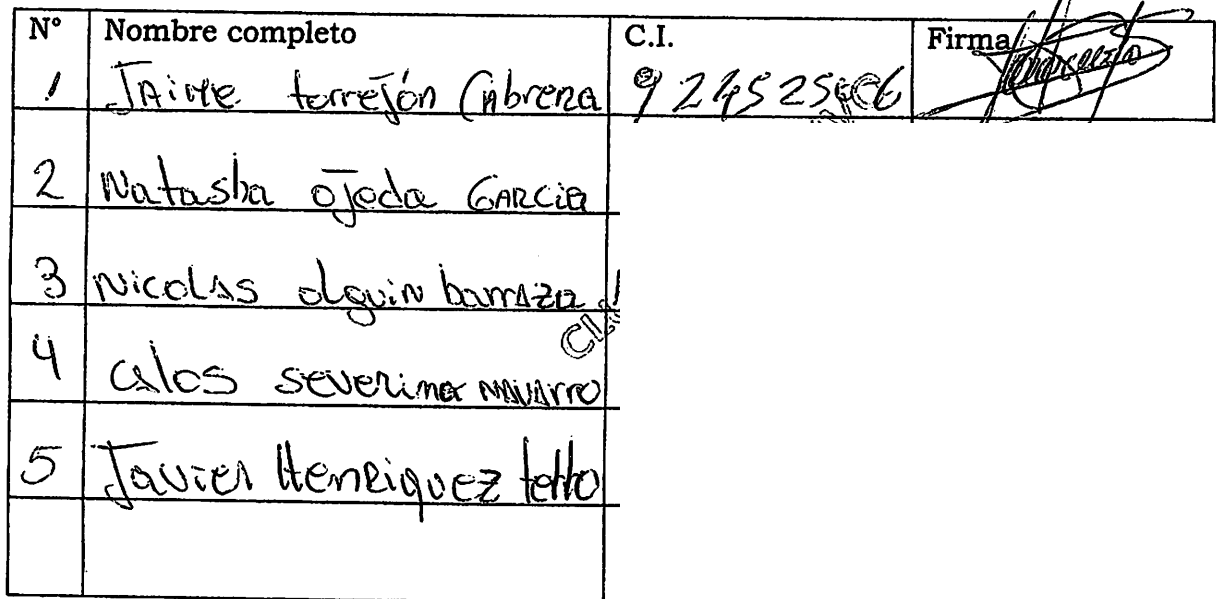 N° Nombre completo C.I. Firma
1 JAime torrejón CAbrera
2 Natasha ojeda GARCIA
3 Nicolas olguin barraza
4 calos severino navarro
5 Javier Henriquez